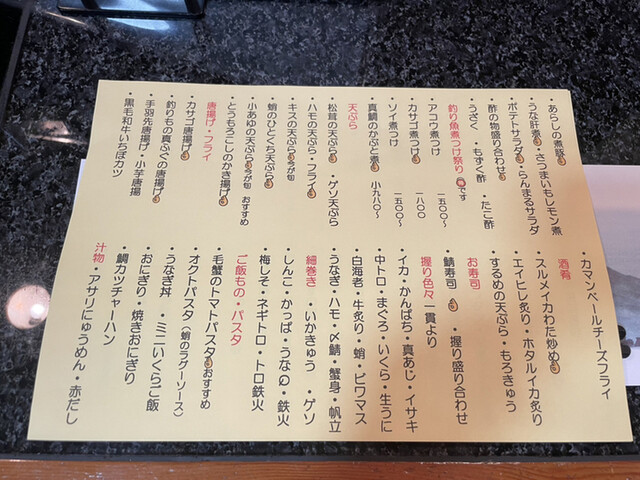 ・あらしの煮豚
・うな肝煮・さつまいもレモン煮
・ポテトサラダ・らんまるサラダ
・酢の物盛り合わせ
・うざく ・もずく酢 ・たこ酢
釣り魚煮つけ祭り です
・アコウ煮つけ 一五〇〇〜
・カサゴ煮つけ 一八〇〇
・ソイ煮つけ 一五〇〇〜
・真鯛のかぶと煮 小九八〇〜
天ぷら
・松茸の天ぷら ・ゲソ天ぷら
・ハモの天ぷら・フライ
・キスの天ぷら 今が旬
・蛸のひとくち天ぷら
・小あゆの天ぷら 今が旬 おすすめ
・とうもろこしのかき揚げ
唐揚げ・フライ
・カサゴ唐揚げ
・釣りもの真ふぐの唐揚げ
・手羽先唐揚げ・小芋唐揚
・黒毛和牛いちぼカツ
・カマンベールチーズフライ
酒肴
・スルメイカわた炒め
・エイヒレ炙り・ホタルイカ炙り
・するめの天ぷら・もろきゅう
お寿司
・鯖寿司 ・握り盛り合わせ
握り色々 一貫より
・イカ・かんぱち・真あじ・イサキ
・中トロ・まぐろ・いくら・生うに
・白海老・牛炙り・蛸・ビワマス
・うなぎ・ハモ・〆鯖・蟹身・帆立
細巻き ・いかきゅう ・ゲソ
・しんこ・かっぱ・うなQ・鉄火
・梅しそ・ネギトロ・トロ鉄火
ご飯もの・パスタ
・毛蟹のトマトパスタ おすすめ
・オクトパスタ（蛸のラグーソース）
・うなぎ丼 ・ミニいくらご飯
・おにぎり・焼きおにぎり
・鯛カツチャーハン
汁物・アサリにゅうめん・赤だし